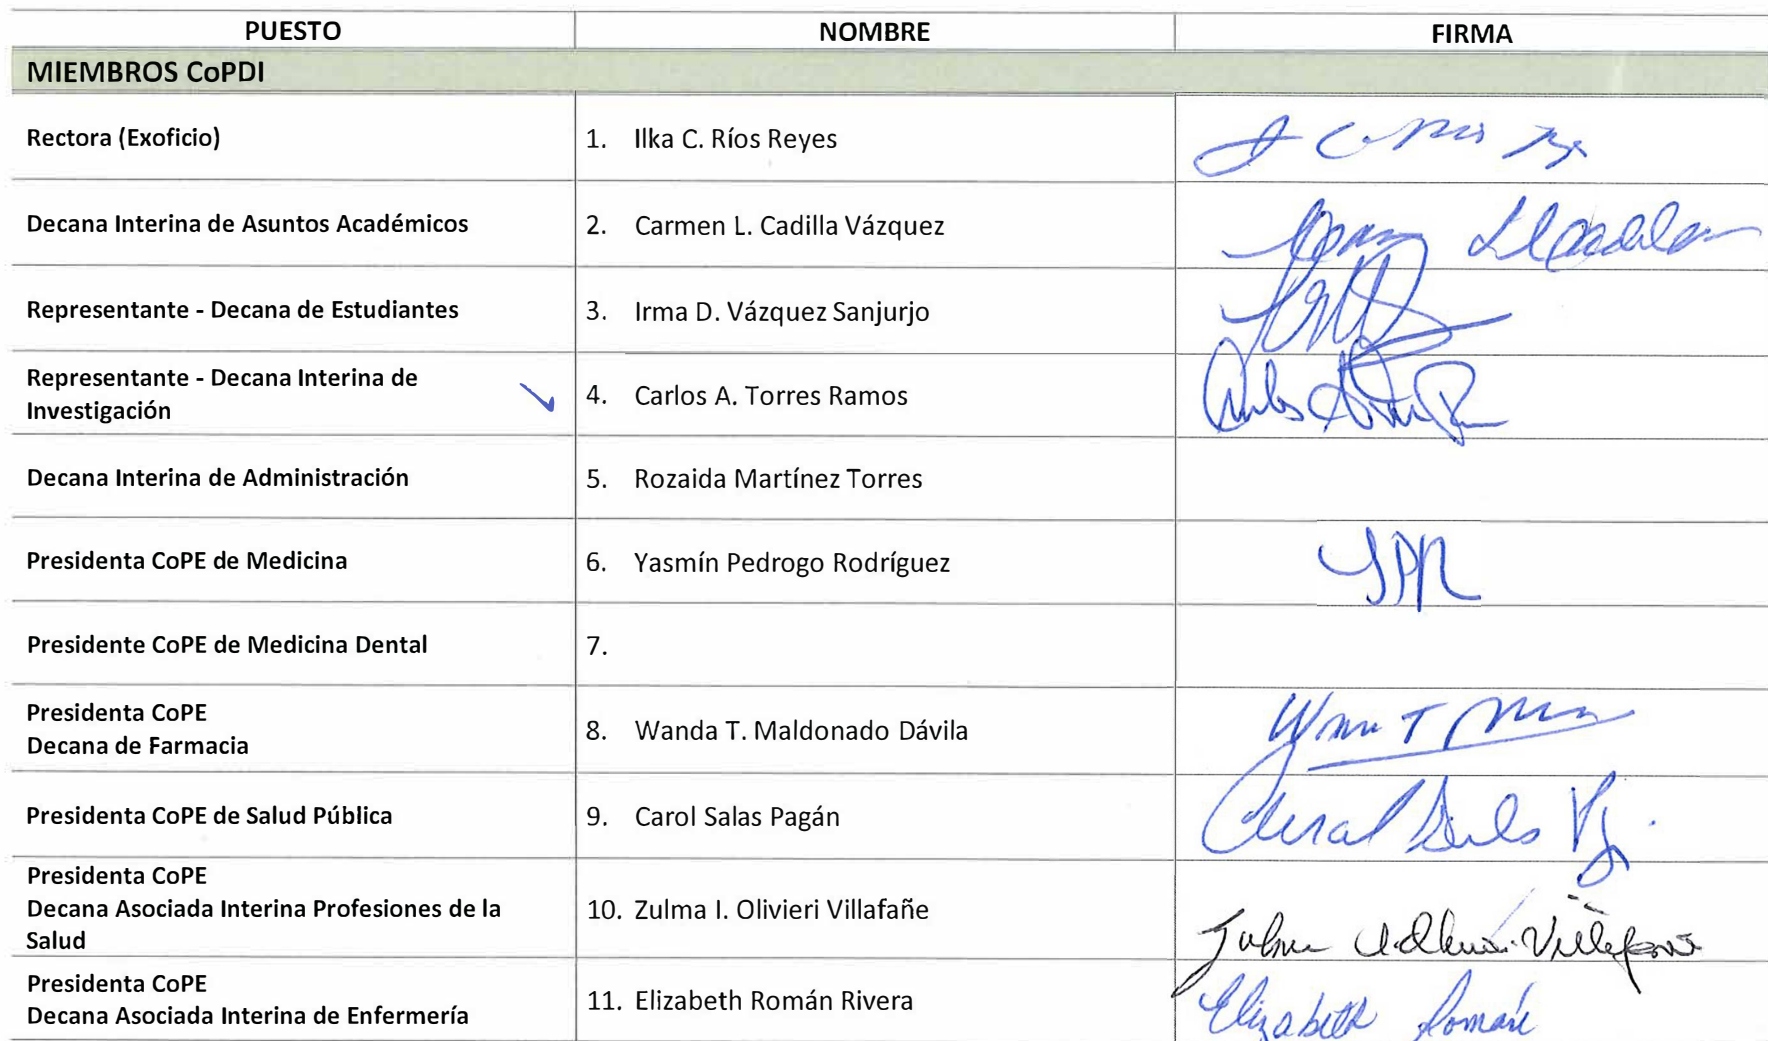 PUESTO NOMBRE FIRMA
MIEMBROS CoPDI
Rectora (Exoficio) 1. Ilka C. Ríos Reyes
Decana Interina de Asuntos Académicos 2. Carmen L. Cadilla Vázquez
Representante - Decana de Estudiantes 3. Irma D. Vázquez Sanjurjo
Representante - Decana Interina de
Investigación 4. Carlos A. Torres Ramos
Decana Interina de Administración 5. Rozaida Martínez Torres
Presidenta CoPE de Medicina 6. Yasmín Pedrogo Rodríguez YPR
Presidente CoPE de Medicina Dental 7.
Presidenta CoPE
Decana de Farmacia 8. Wanda T. Maldonado Dávila
Presidenta CoPE de Salud Pública 9. Carol Salas Pagán
Presidenta CoPE
Decana Asociada Interina Profesiones de la
Salud 10. Zulma I. Olivieri Villafañe
Presidenta CoPE
Decana Asociada Interina de Enfermería 11. Elizabeth Román Rivera Elizabeth Román